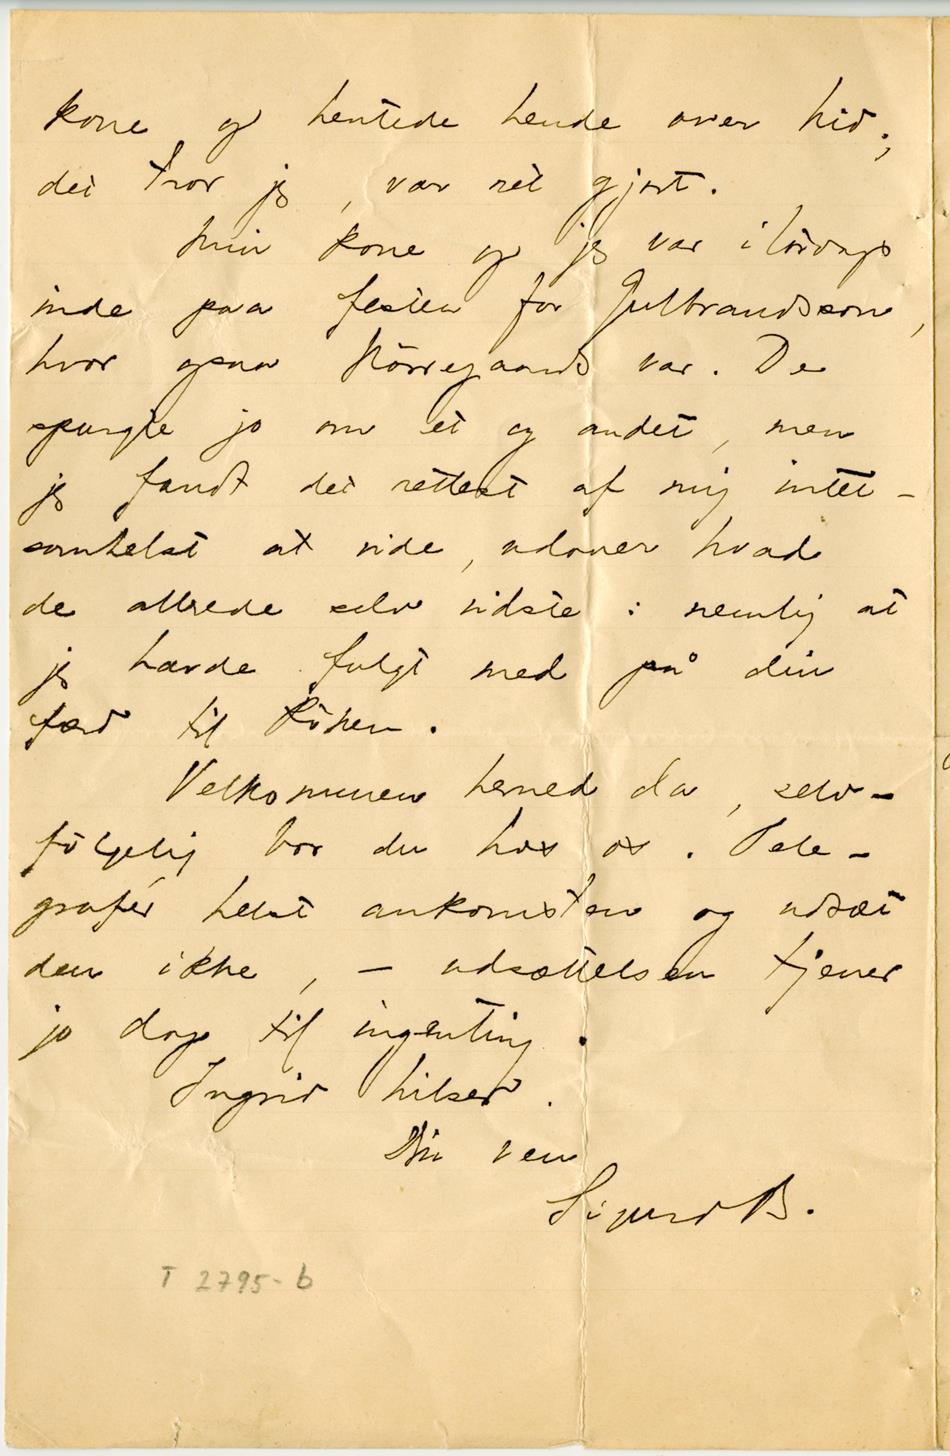 kone og hentede hende over hid;
det tror jeg, var ret gjort.
Min kone og jeg var i lördags
inde paa festen for Gulbrandsson,
hvor ogsaa Nörregaards var. De
spurgte jo om et og andet, men
jeg fandt det rettest af mig intet-
somhelst at vide, udover hvad
de allrede selv vidste: nemlig at
jeg havde fulgt med på din
færd til Röken.
Velkommen herned da, selv-
fölgelig bor du hos os. Tele-
grafér helst ankomsten og udsæt
den ikke, – udsættelsen tjener
jo dog til ingenting.
Ingrid hilser.
Din ven
Sigurd B.
T 2795-b